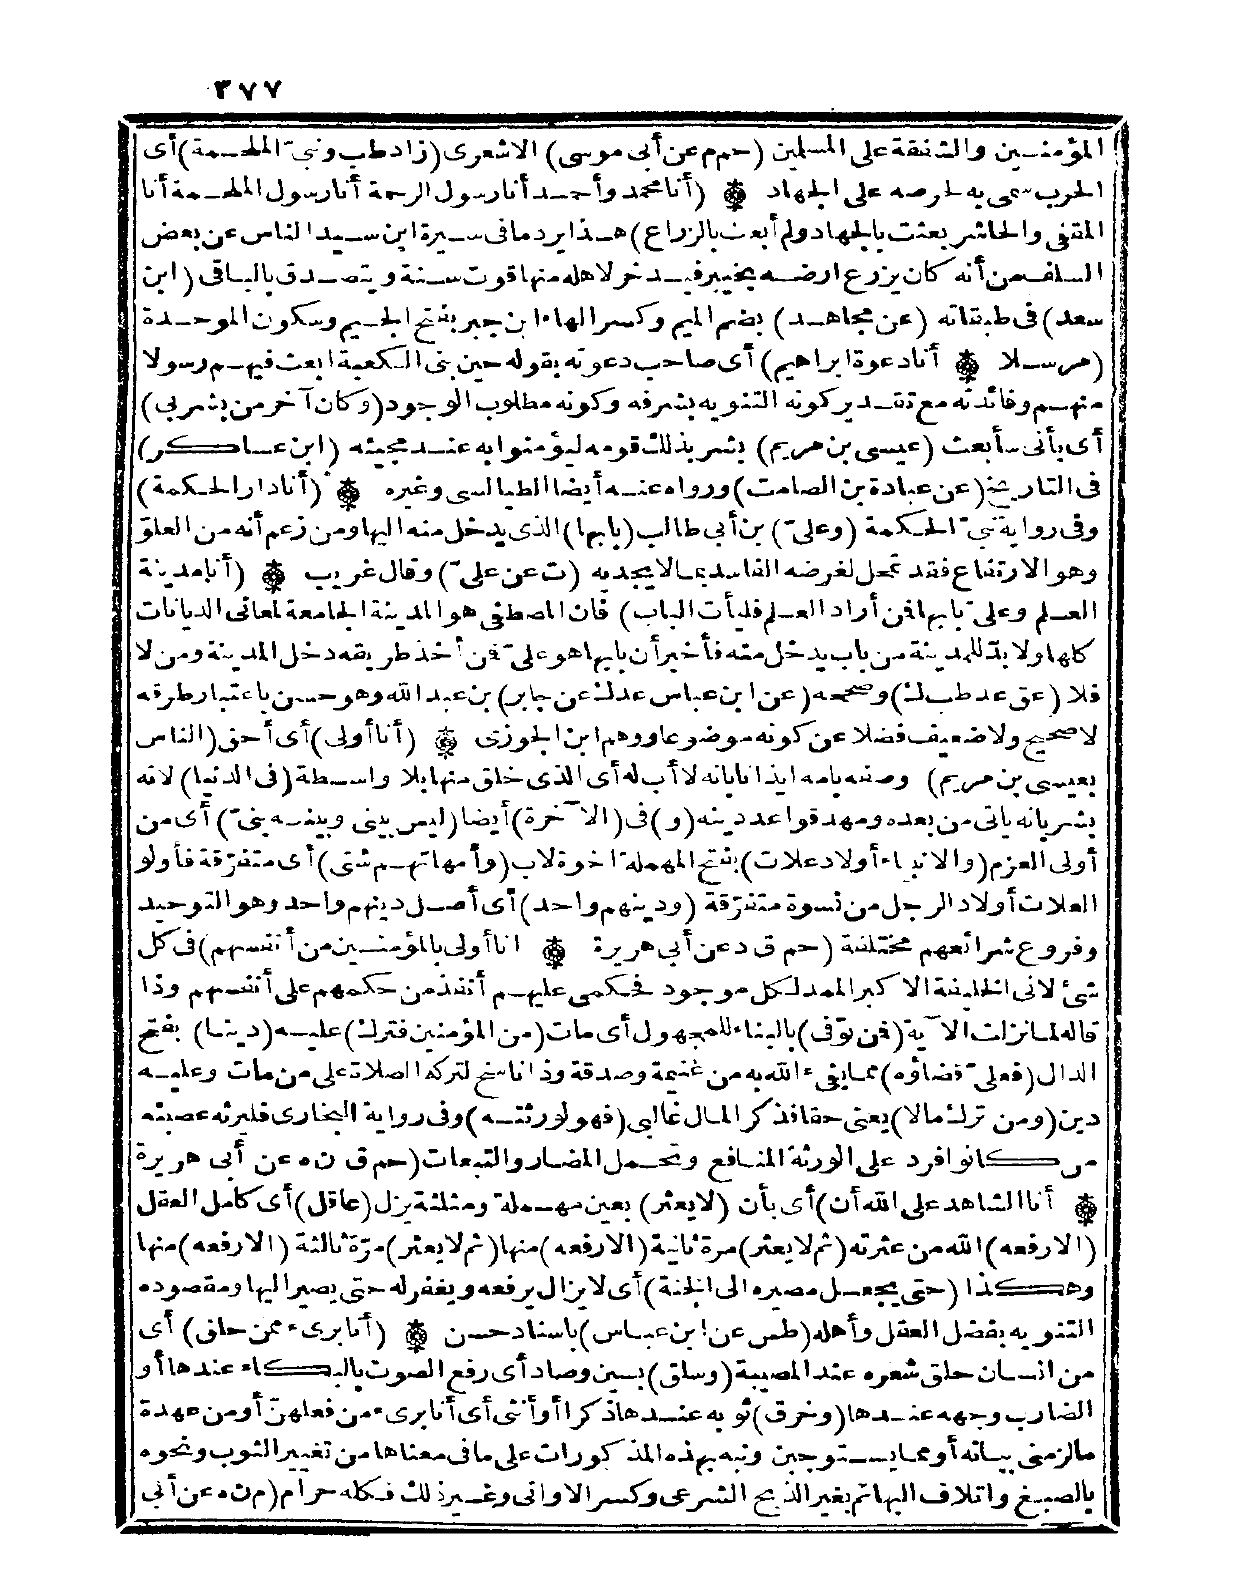 ٣٧٧
المؤمنين والشفقة على المسلمين (حم م عن أبى موسى) الاشعرى (زاد طب ونبىّ الملحمة) أى
الحرب سمى به لحرصه على الجهاد ۞ (أنا محمد وأحمد أنا رسول الرحمة أنا رسول الملحمة أنا
المقفى والحاشر بعثت بالجهاد ولم أبعث بالزراع) هذا يرد ما فى سيرة ابن سيد الناس عن بعض
السلف من أنه كان يزرع ارضه بخيبر فيدخر لاهله منها قوت سنة ويتصدق بالباقى (ابن
سعد) فى طبقاته (عن مجاهد) بضم الميم وكسر الهاء ابن جبر بفتح الجيم وسكون الموحدة
(مرسلا ۞ أنا دعوة ابراهيم) أى صاحب دعوته بقوله حين بنى الكعبة ابعث فيهم رسولا
منهم وفائدته مع تقدير كونه التنويه بشرفه وكونه مطلوب الوجود (وكان آخر من بشر بى)
أى بأنى سأبعث (عيسى بن مريم) بشر بذلك قومه ليؤمنوا به عند مجيئه (ابن عساكر)
فى التاريخ (عن عبادة بن الصامت) ورواه عنه أيضا الطيالسى وغيره ۞ (أنا دار الحكمة)
وفى رواية نبىّ الحكمة (وعلىّ) بن أبى طالب (بابها) الذى يدخل منه اليها ومن زعم أنه من العلوّ
وهو الارتفاع فقد تمحل لغرضه الفاسد بما لا يجديه (ت عن علىّ) وقال غريب ۞ (أنا مدينة
العلم وعلىّ بابها فمن أراد العلم فليأت الباب) فان المصطفى هو المدينة الجامعة لمعانى الديانات
كلها ولا بدّ للمدينة من باب يدخل منه فأخبر أن بابها هو علىّ فمن أخذ طريقه دخل المدينة ومن لا
فلا (عق عد طب ك) وصححه (عن ابن عباس عد ك عن جابر) بن عبد الله وهو حسن باعتبار طرقه
لا صحيح ولا ضعيف فضلا عن كونه موضوعا ووهم ابن الجوزى ۞ (أنا أولى) أى أحق (الناس
بعيسى بن مريم) وصفه بامه ايذانا بانه لا أب له أى الذى خلق منها بلا واسطة (فى الدنيا) لانه
بشر بانه يأتى من بعده ومهد قواعد دينه (و) فى (الآخرة) أيضا (ليس بينى وبينه نبىّ) أى من
أولى العزم (والانبياء أولاد علات) بفتح المهملة اخوة لاب (وأمهاتهم شتى) أى متفرقة فأولو
العلات أولاد الرجل من نسوة متفرّقة (ودينهم واحد) أى أصل دينهم واحد وهو التوحيد
وفروع شرائعهم مختلفة (حم ق د عن أبى هريرة ۞ انا أولى بالمؤمنين من أنفسهم) فى كل
شئ لانى الخليفة الاكبر الممد لكل موجود فحكمى عليهم أنفذ من حكمهم على أنفسهم وذا
قاله لما نزلت الآية (فمن توفى) بالبناء للمجهول أى مات (من المؤمنين فترك) عليه (دينا) بفتح
الدال (فعلىّ قضاؤه) مما يفىء الله به من غنيمة وصدقة وذا ناسخ لتركه الصلاة على من مات وعليه
دين (ومن ترك مالا) يعنى حقا فذكر المال غالبى (فهو لورثته) وفى رواية البخارى فليرثه عصبته
من كانوا فرد على الورثة المنافع وتحمل المضار والتبعات (حم ق ن ه عن أبى هريرة
۞ أنا الشاهد على الله أن) أى بأن (لا يعثر) بعين مهملة ومثلثة يزل (عاقل) أى كامل العقل
(الا رفعه) الله من عثرته (ثم لا يعثر) مرة ثانية (الا رفعه) منها (ثم لا يعثر) مرّة ثالثة (الا رفعه) منها
وهكذا (حتى يجعل مصيره الى الجنة) أى لا يزال يرفعه ويغفر له حتى يصير اليها ومقصوده
التنويه بفضل العقل وأهله (طس عن ابن عباس) باسناد حسن ۞ (أنا برىء ممن حلق) أى
من انسان حلق شعره عند المصيبة (وسلق) بسين وصاد أى رفع الصوت بالبكاء عندها أو
الضارب وجهه عندها (وخرق) ثوبه عندها ذكرا أو أنثى أى أنا برىء من فعلهنّ أو من عهدة
ما لزمنى بيانه أو مما يستوجبن ونبه بهذه المذكورات على ما فى معناها من تغيير الثوب ونحوه
بالصبغ واتلاف البهائم بغير الذبح الشرعى وكسر الاوانى وغير ذلك فكله حرام (م ن ه عن أبى